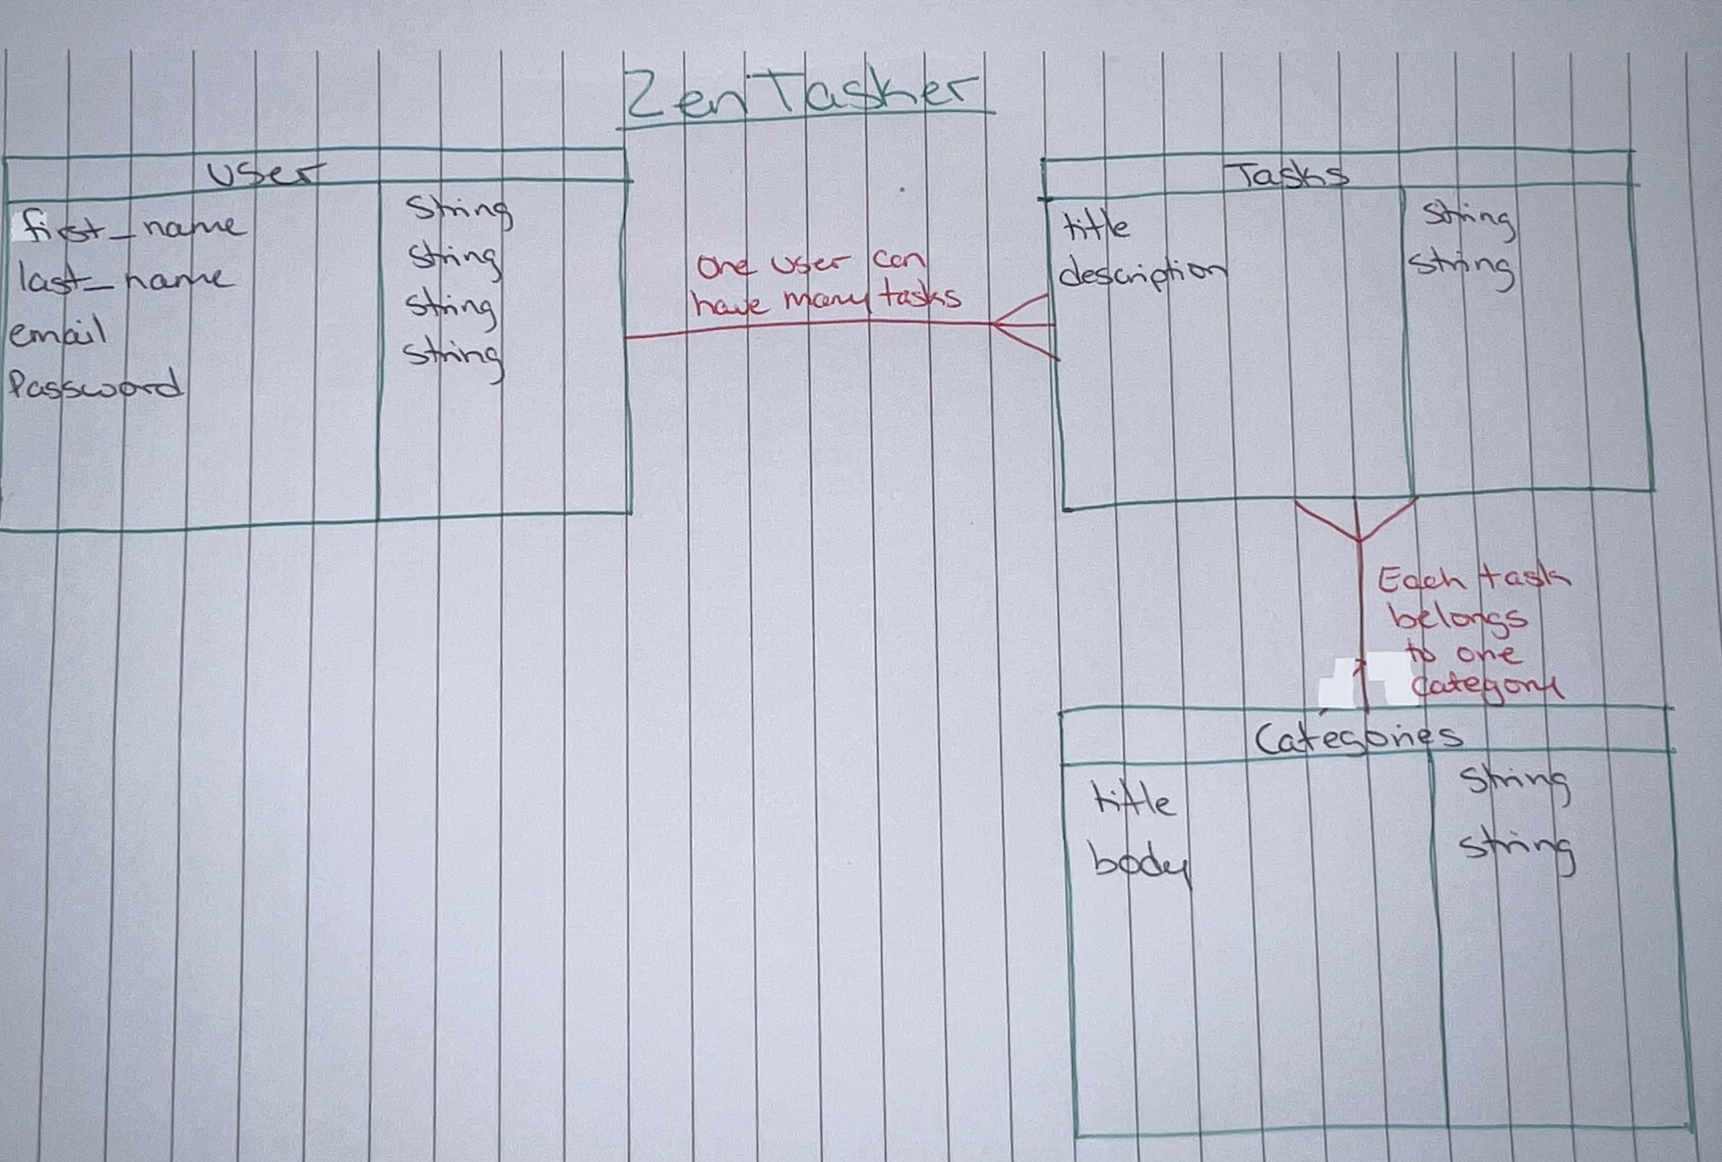 ZenTasker
User
first_name String
last_name String
email String
Password String
One user can
have many tasks
Tasks
title String
description String
Each task
belongs
to one
Category
Categories
title String
body String